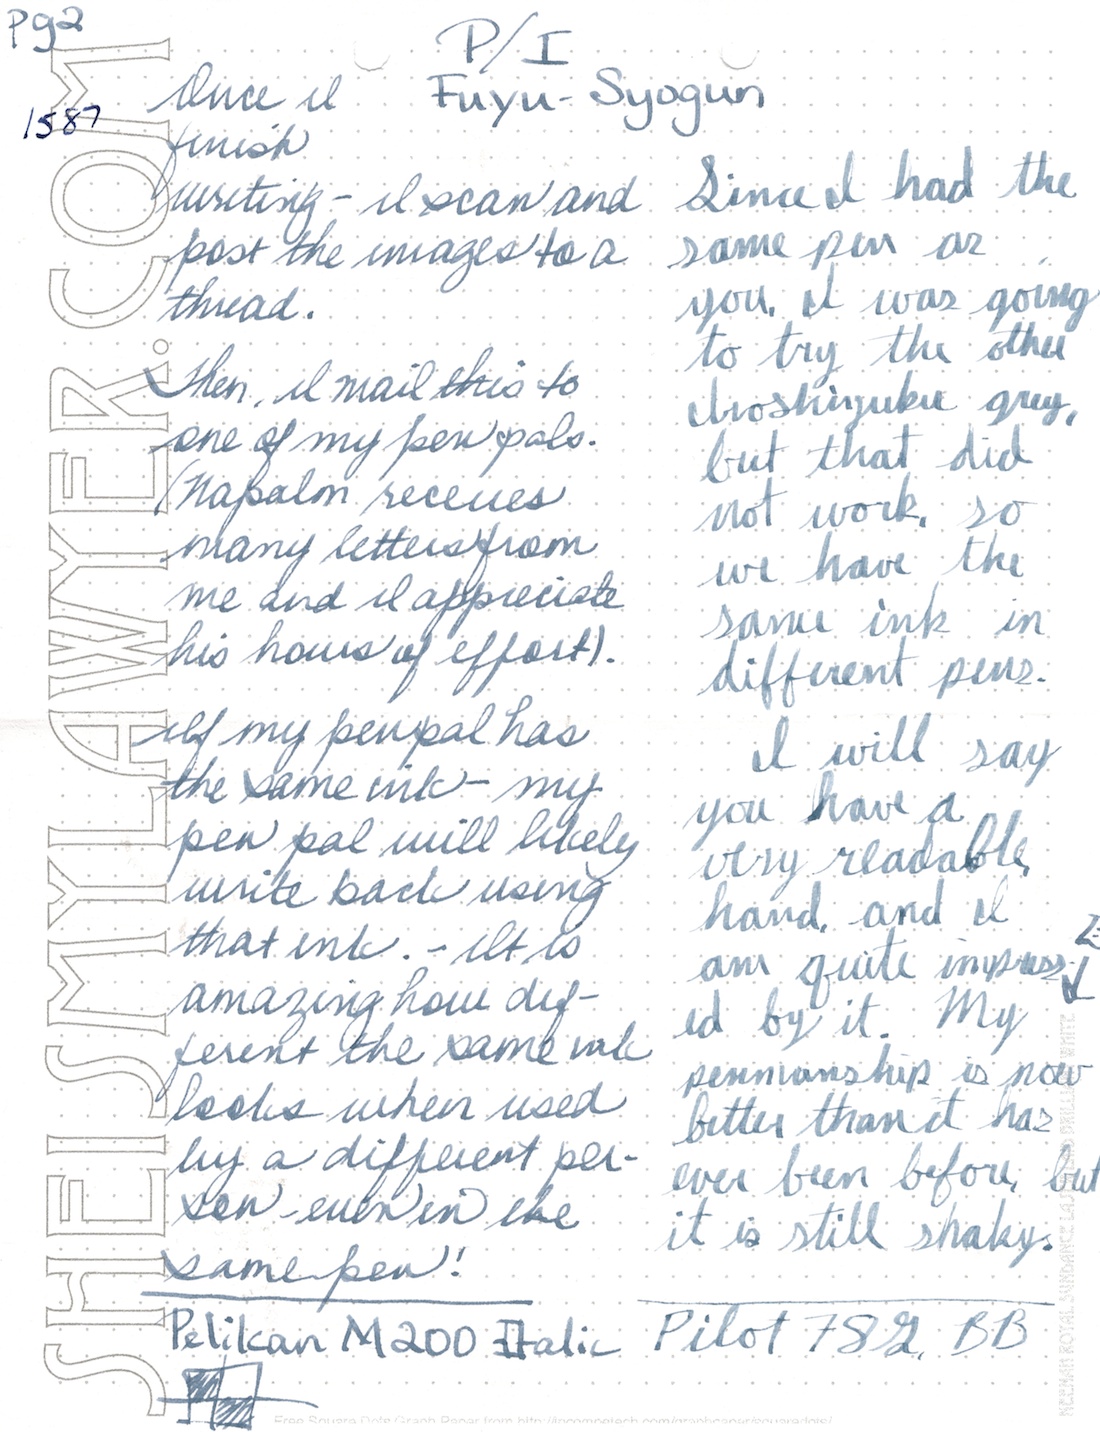 Pg2
1587
P/I
Fuyu-Syogun
Once I
finish
writing - I scan and
post the images to a
thread.
Then, I mail this to
one of my pen pals.
(Napalm receives
many letters from
me and I appreciate
his hours of effort).
If my penpal has
the same ink - my
pen pal will likely
write back using
that ink. - It is
amazing how dif-
ferent the same ink
looks when used
by a different per-
son - even in the
same pen!
Pelikan M200 Italic
Since I had the
same pen as
you, I was going
to try the other
Iroshizuku grey,
but that did
not work, so
we have the
same ink in
different pens.
I will say
you have a
very readable
hand, and I
am quite impress-
ed by it. My
penmanship is now
better than it has
ever been before, but
it is still shaky.
Pilot 78G, BB
SHEISMYLAWYER.COM
NEENAH ROYAL SUNDANCE LAID BRILLIANT WHITE
Free Square Dots Graph Paper from http://incompetech.com/graphpaper/squaredots/